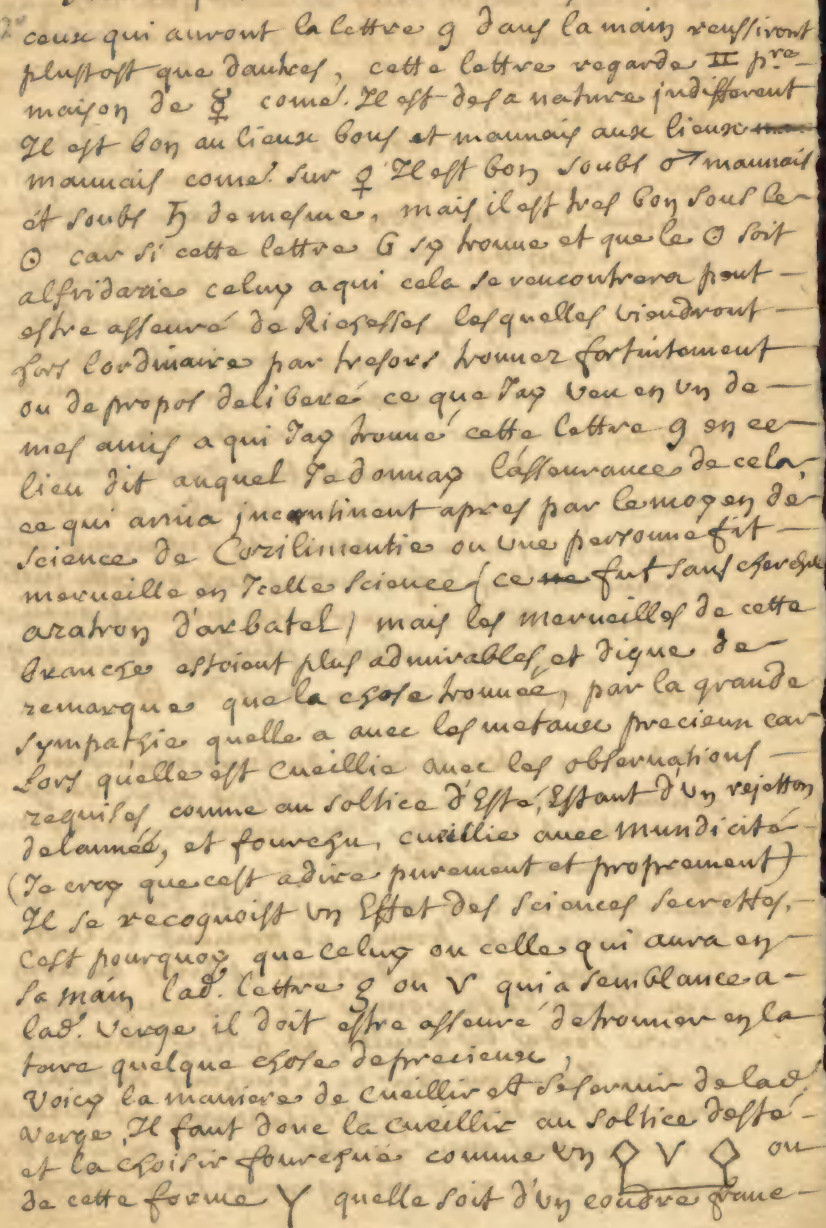 ceux qui auront la lettre g dans la main reussiront
plustost que dautres, cette lettre regarde ♊ pre
maison de ☿ come. Il est de sa nature jndifferent
Il est bon au lieux bons et mauuais aux lieux
mauuais come. sur ♀ Il est bon soubs ♂ mauuais
et soubs ♄ de mesme, mais il est tres bon sous le
☉ car si cette lettre G sy trouue et que le ☉ soit
alfridarie celuy a qui cela se rencontrera peut
estre asseuré de Richesses lesquelles viendront
hors lordinaire par tresors trouuez fortuitement
ou de propos deliberé ce que Jay veu en vn de
mes amis a qui Jay trouué cette lettre g en ce
lieu dit auquel Je donnay lasseurance de cela,
ce qui ariua jncontinent apres par le moyen de
science de Corilimentie ou vne personne fit
merueille en Jcelle science (ce ne fut sans cherche
azatron d'arbatel) mais les merueilles de cette
branche estoient plus admirables, et digne de
remarque que la chose trouueé, par la grande
sympathie quelle a auec les metaux precieux car
Lors quelle est cueillie auec les obseruations
requises comme au solstice d'Esté, Estant d'vn rejetton
de lanneé, et fourchu, cueillie auec mundicité
(Je croy que cest adire purement et proprement)
Il se recognoist vn Effet des sciences secrettes,
cest pourquoy que celuy ou celle qui aura en
sa main lad. lettre g ou V qui a semblance a
lad. verge il doit estre asseuré de trouuer en la
terre quelque chose de precieux,
voicy la maniere de cueillir et se seruir de lad.
verge, Il faut donc la cueillir au soltice desté
et la choisir fourchue comme vn ◇ V ◇ ou
de cette forme Y quelle soit d'vn coudre franc